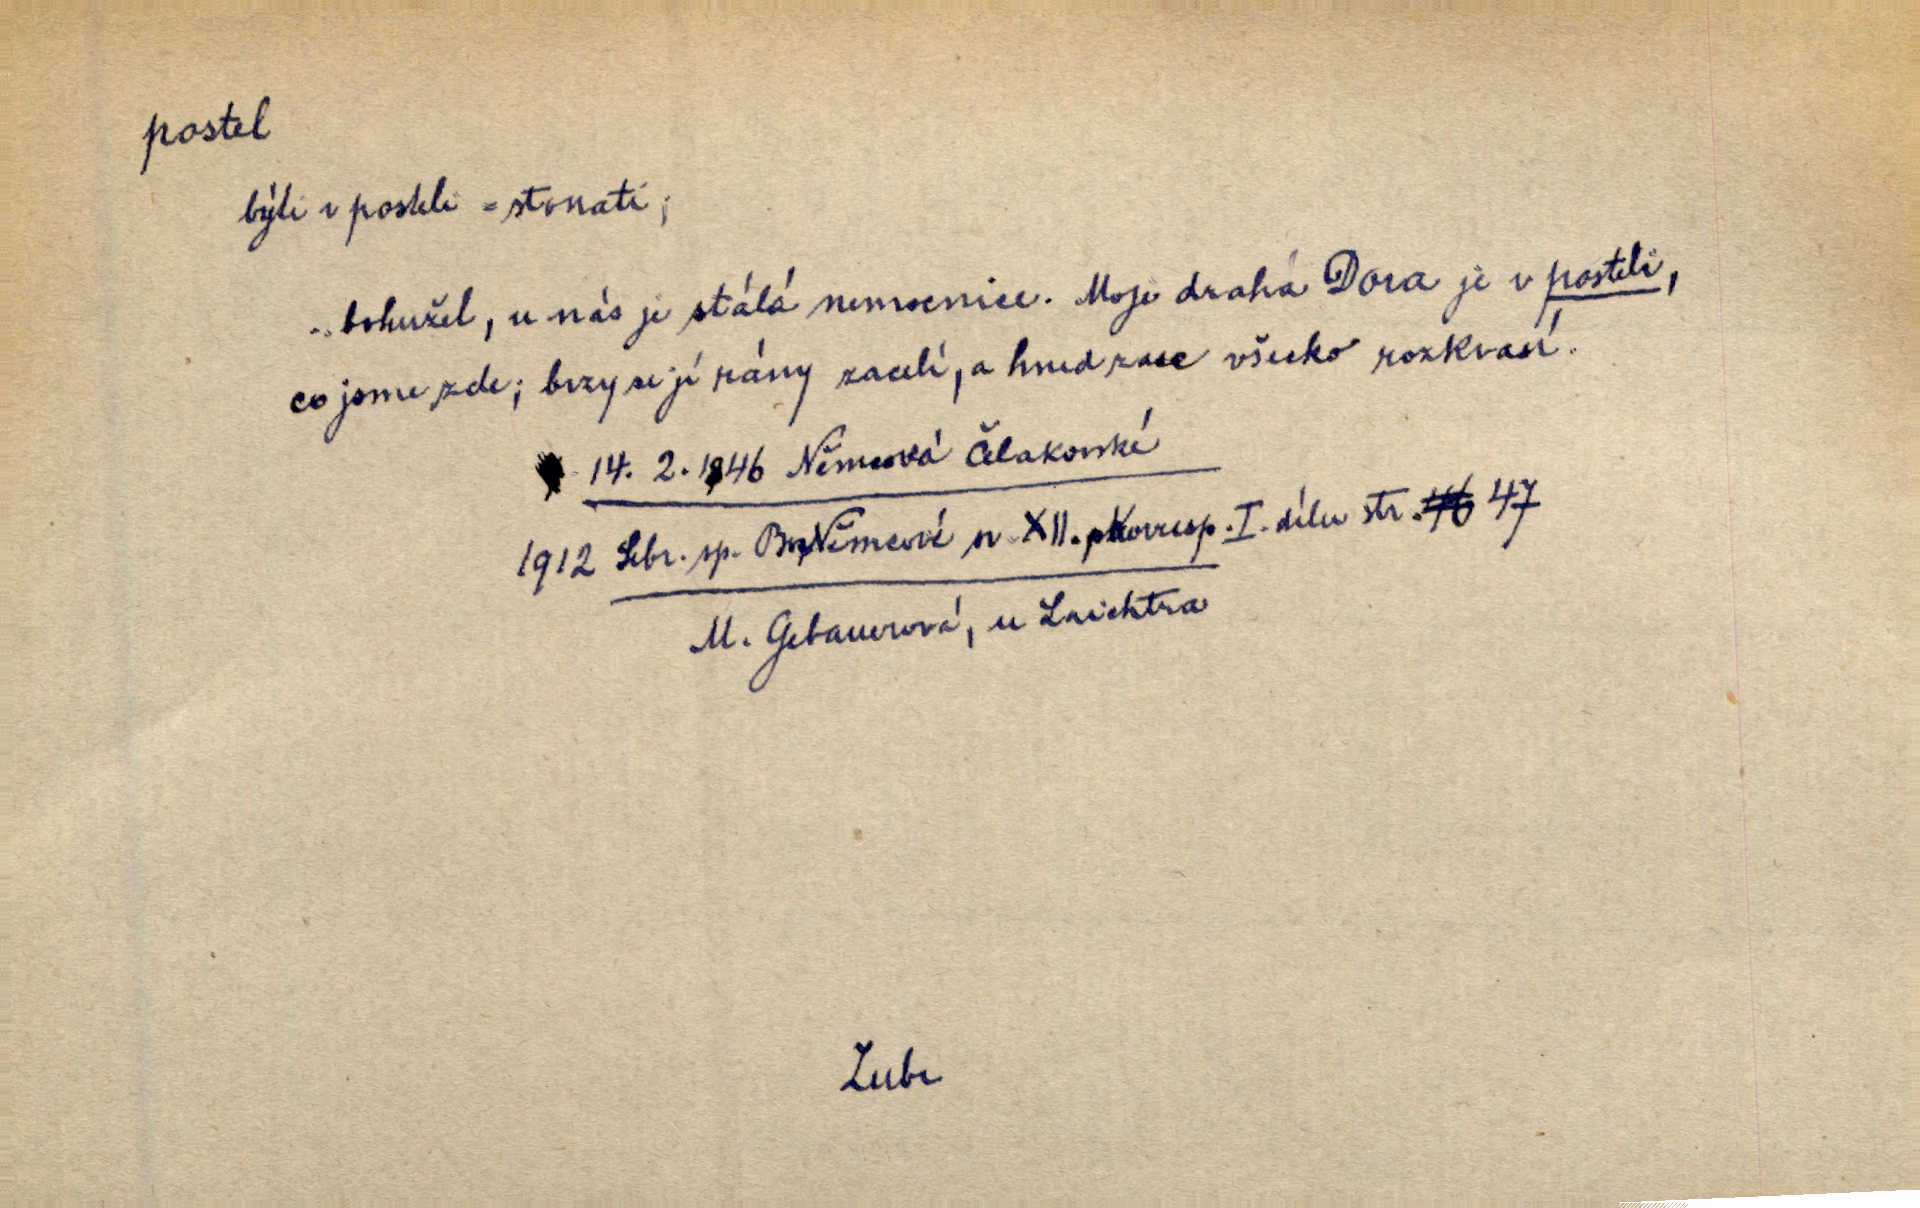 postel
býti v posteli = stonati;
.. bohužel, u nás je stálá nemocnice. Moje drahá Dora je v posteli,
co jsme zde; brzy se jí rány zacelí, a hned zase všecko rozkvasí.
14. 2. 1846 Němcová Čelakovské
1912 Sebr. sp. Boz Němcové sv. XII. Korresp. I. dílu str. 47
M. Gebauerová, u Laichtra
Zubr